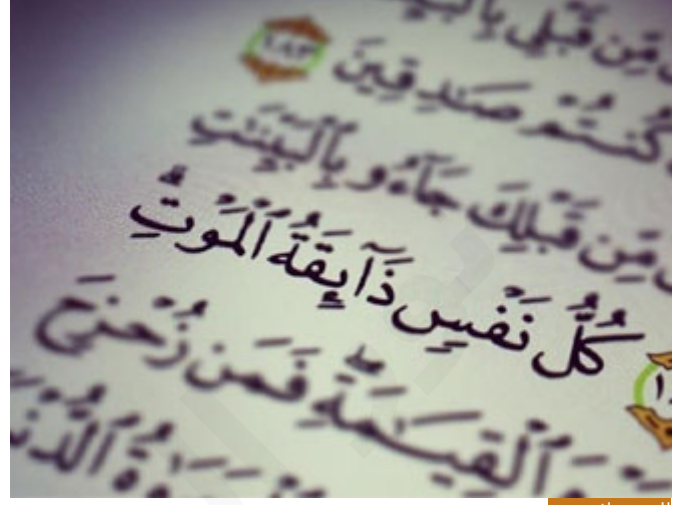 مِّن قَبْلِى بِٱلْبَيِّ
كُنتُمْ صَـٰدِقِينَ ١٨٣
مِّن قَبْلِكَ جَآءُو بِٱلْبَيِّنَـٰتِ
كُلُّ نَفْسٍ ذَآئِقَةُ ٱلْمَوْتِ ۗ
ٱلْقِيَـٰمَةِ ۖ فَمَن زُحْزِحَ